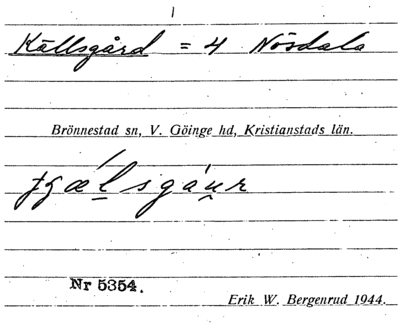 Källsgård = 4 Nösdala
Brönnestad sn, V. Göinge hd, Kristianstads län.
Nr 5354.
Erik W. Bergenrud 1944.